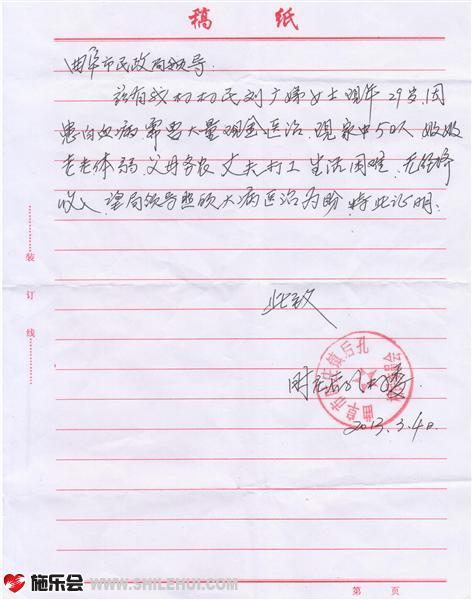 稿 纸
曲阜市民政局领导:
兹有我村村民刘广娣女士现年29岁,因
患白血病需要大量现金医治,现家中50人
老老体弱 父母务农 丈夫打工 生活困难 无经济
收入 望局领导照顾大病医治为盼,特此证明.
此致
村委
2013.3.4日
装
订
线
第 页
施乐会 WWW.SHILEHUI.COM